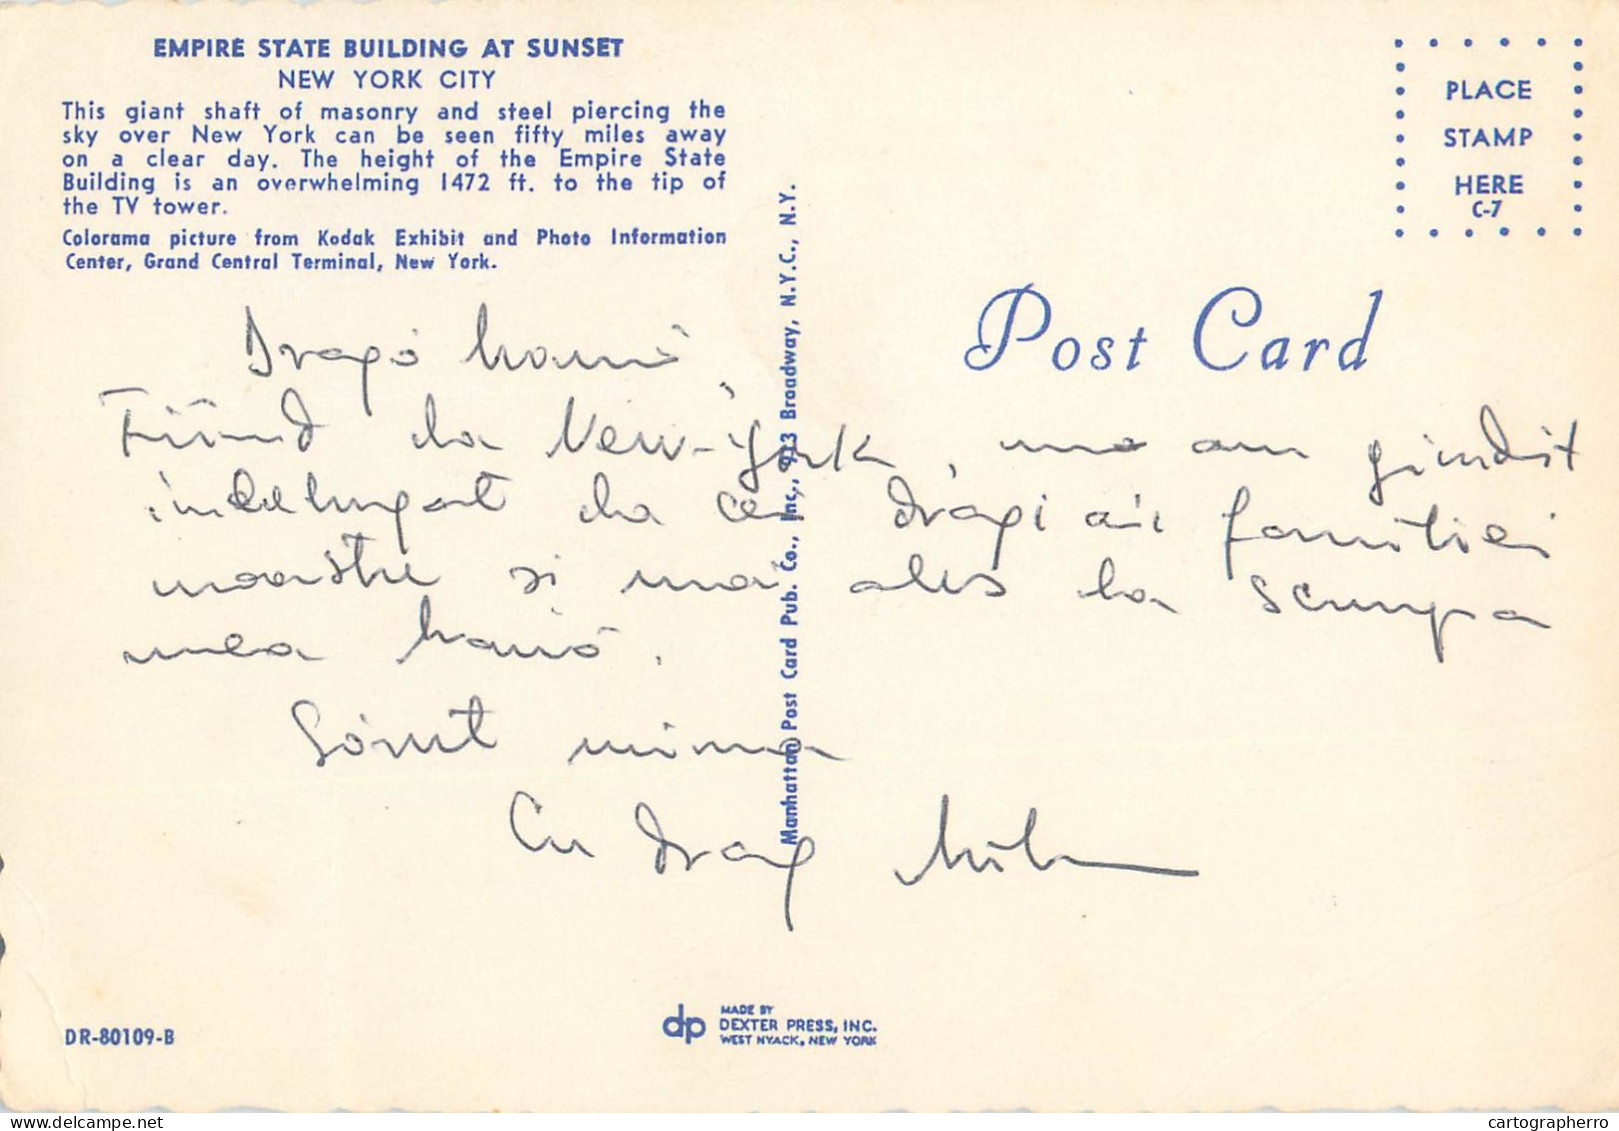 EMPIRE STATE BUILDING AT SUNSET
NEW YORK CITY
This giant shaft of masonry and steel piercing the
sky over New York can be seen fifty miles away
on a clear day. The height of the Empire State
Building is an overwhelming 1472 ft. to the tip of
the TV tower.
Colorama picture from Kodak Exhibit and Photo Information
Center, Grand Central Terminal, New York.
PLACE
STAMP
HERE
C-7
Post Card
Manhattan Post Card Pub. Co., Inc., 913 Broadway, N.Y.C., N.Y.
Dragă
Fiind la New-York, am gindit
indelungat la cei dragi ai familiei
noastre si mai ales la scumpa
mea
Sărut mina
Cu drag
DR-80109-B
dp MADE BY
DEXTER PRESS, INC.
WEST NYACK, NEW YORK
cartographerro